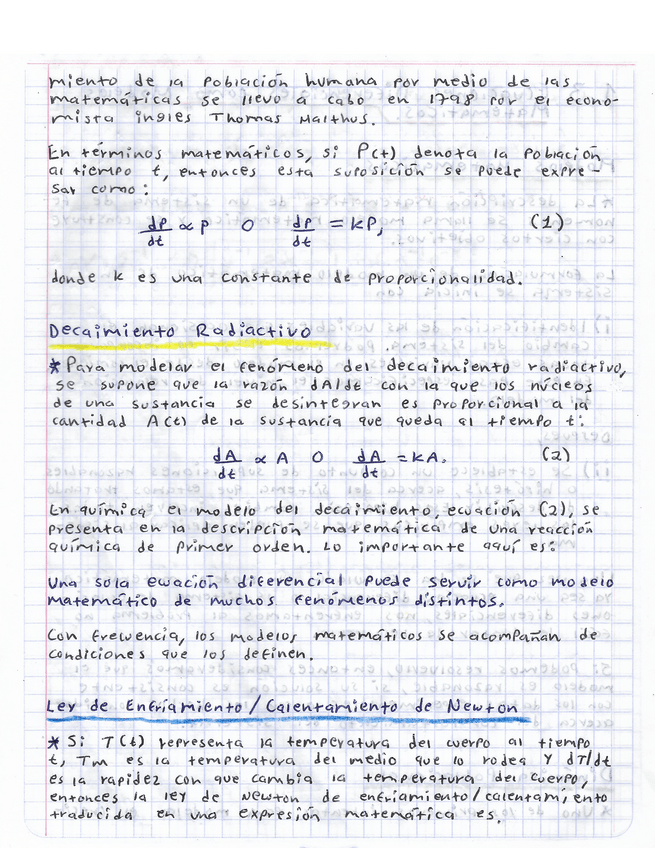 miento de la población humana por medio de las
matemáticas se llevo a cabo en 1798 por el econo-
mista ingles Thomas Malthus.
En términos matemáticos, si P(t) denota la población
al tiempo t, entonces esta suposición se puede expre-
sar como:
dP/dt ∝ P o dP/dt = kP, (1)
donde k es una constante de proporcionalidad.
Decaimiento Radiactivo
* Para modelar el fenómeno del decaimiento radiactivo,
se supone que la razón dA/dt con la que los núcleos
de una sustancia se desintegran es proporcional a la
cantidad A(t) de la sustancia que queda al tiempo t:
dA/dt ∝ A o dA/dt = kA. (2)
En química el modelo del decaimiento, ecuación (2), se
presenta en la descripción matemática de una reacción
química de primer orden. Lo importante aquí es:
Una sola ecuación diferencial puede servir como modelo
matemático de muchos fenómenos distintos.
Con frecuencia, los modelos matemáticos se acompañan de
condiciones que los definen.
Ley de Enfriamiento/Calentamiento de Newton
* Si T(t) representa la temperatura del cuerpo al tiempo
t, Tm es la temperatura del medio que lo rodea y dT/dt
es la rapidez con que cambia la temperatura del cuerpo,
entonces la ley de Newton de enfriamiento/calentamiento
traducida en una expresión matemática es.